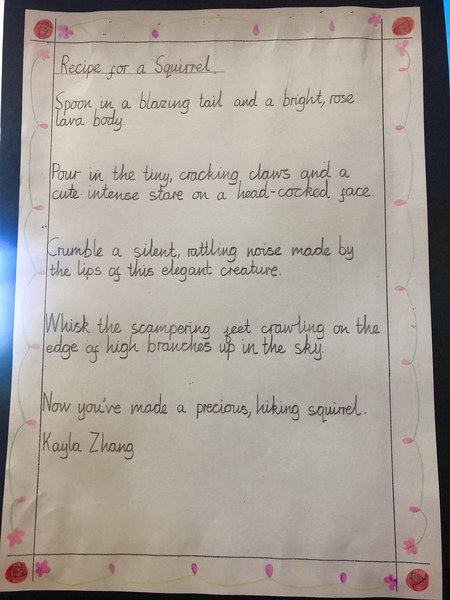 Recipe for a Squirrel
Spoon in a blazing tail and a bright, rose
lava body.
Pour in the tiny, cracking claws and a
cute intense stare on a head-cocked face.
Crumble a silent, rattling noise made by
the lips of this elegant creature.
Whisk the scampering feet crawling on the
edge of high branches up in the sky.
Now you've made a precious, hiking squirrel.
Kayla Zhang